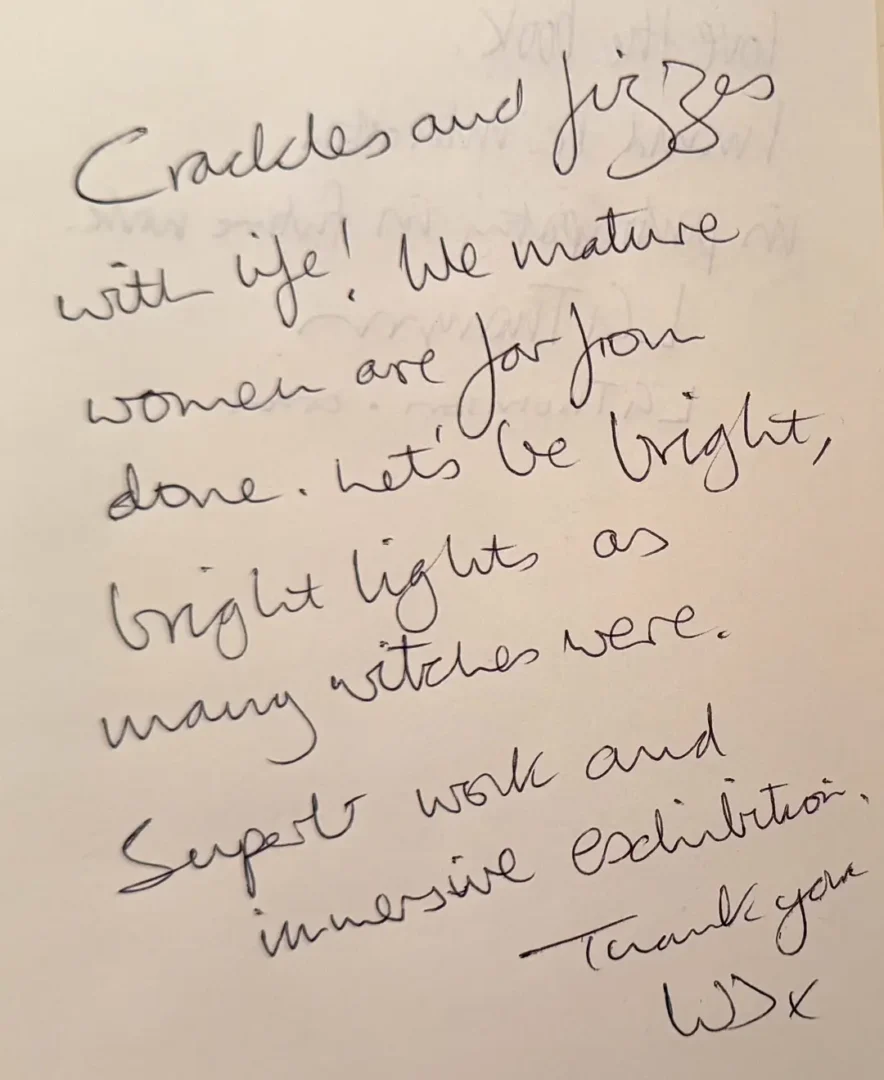 Crackles and fizzes
with life! We mature
women are far from
done. Let's be bright,
bright lights as
many witches were.
Superb work and
immersive exhibition.
Thank you
WDx